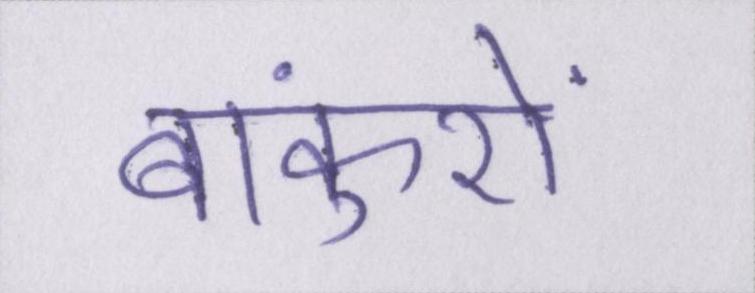 बांकुरों